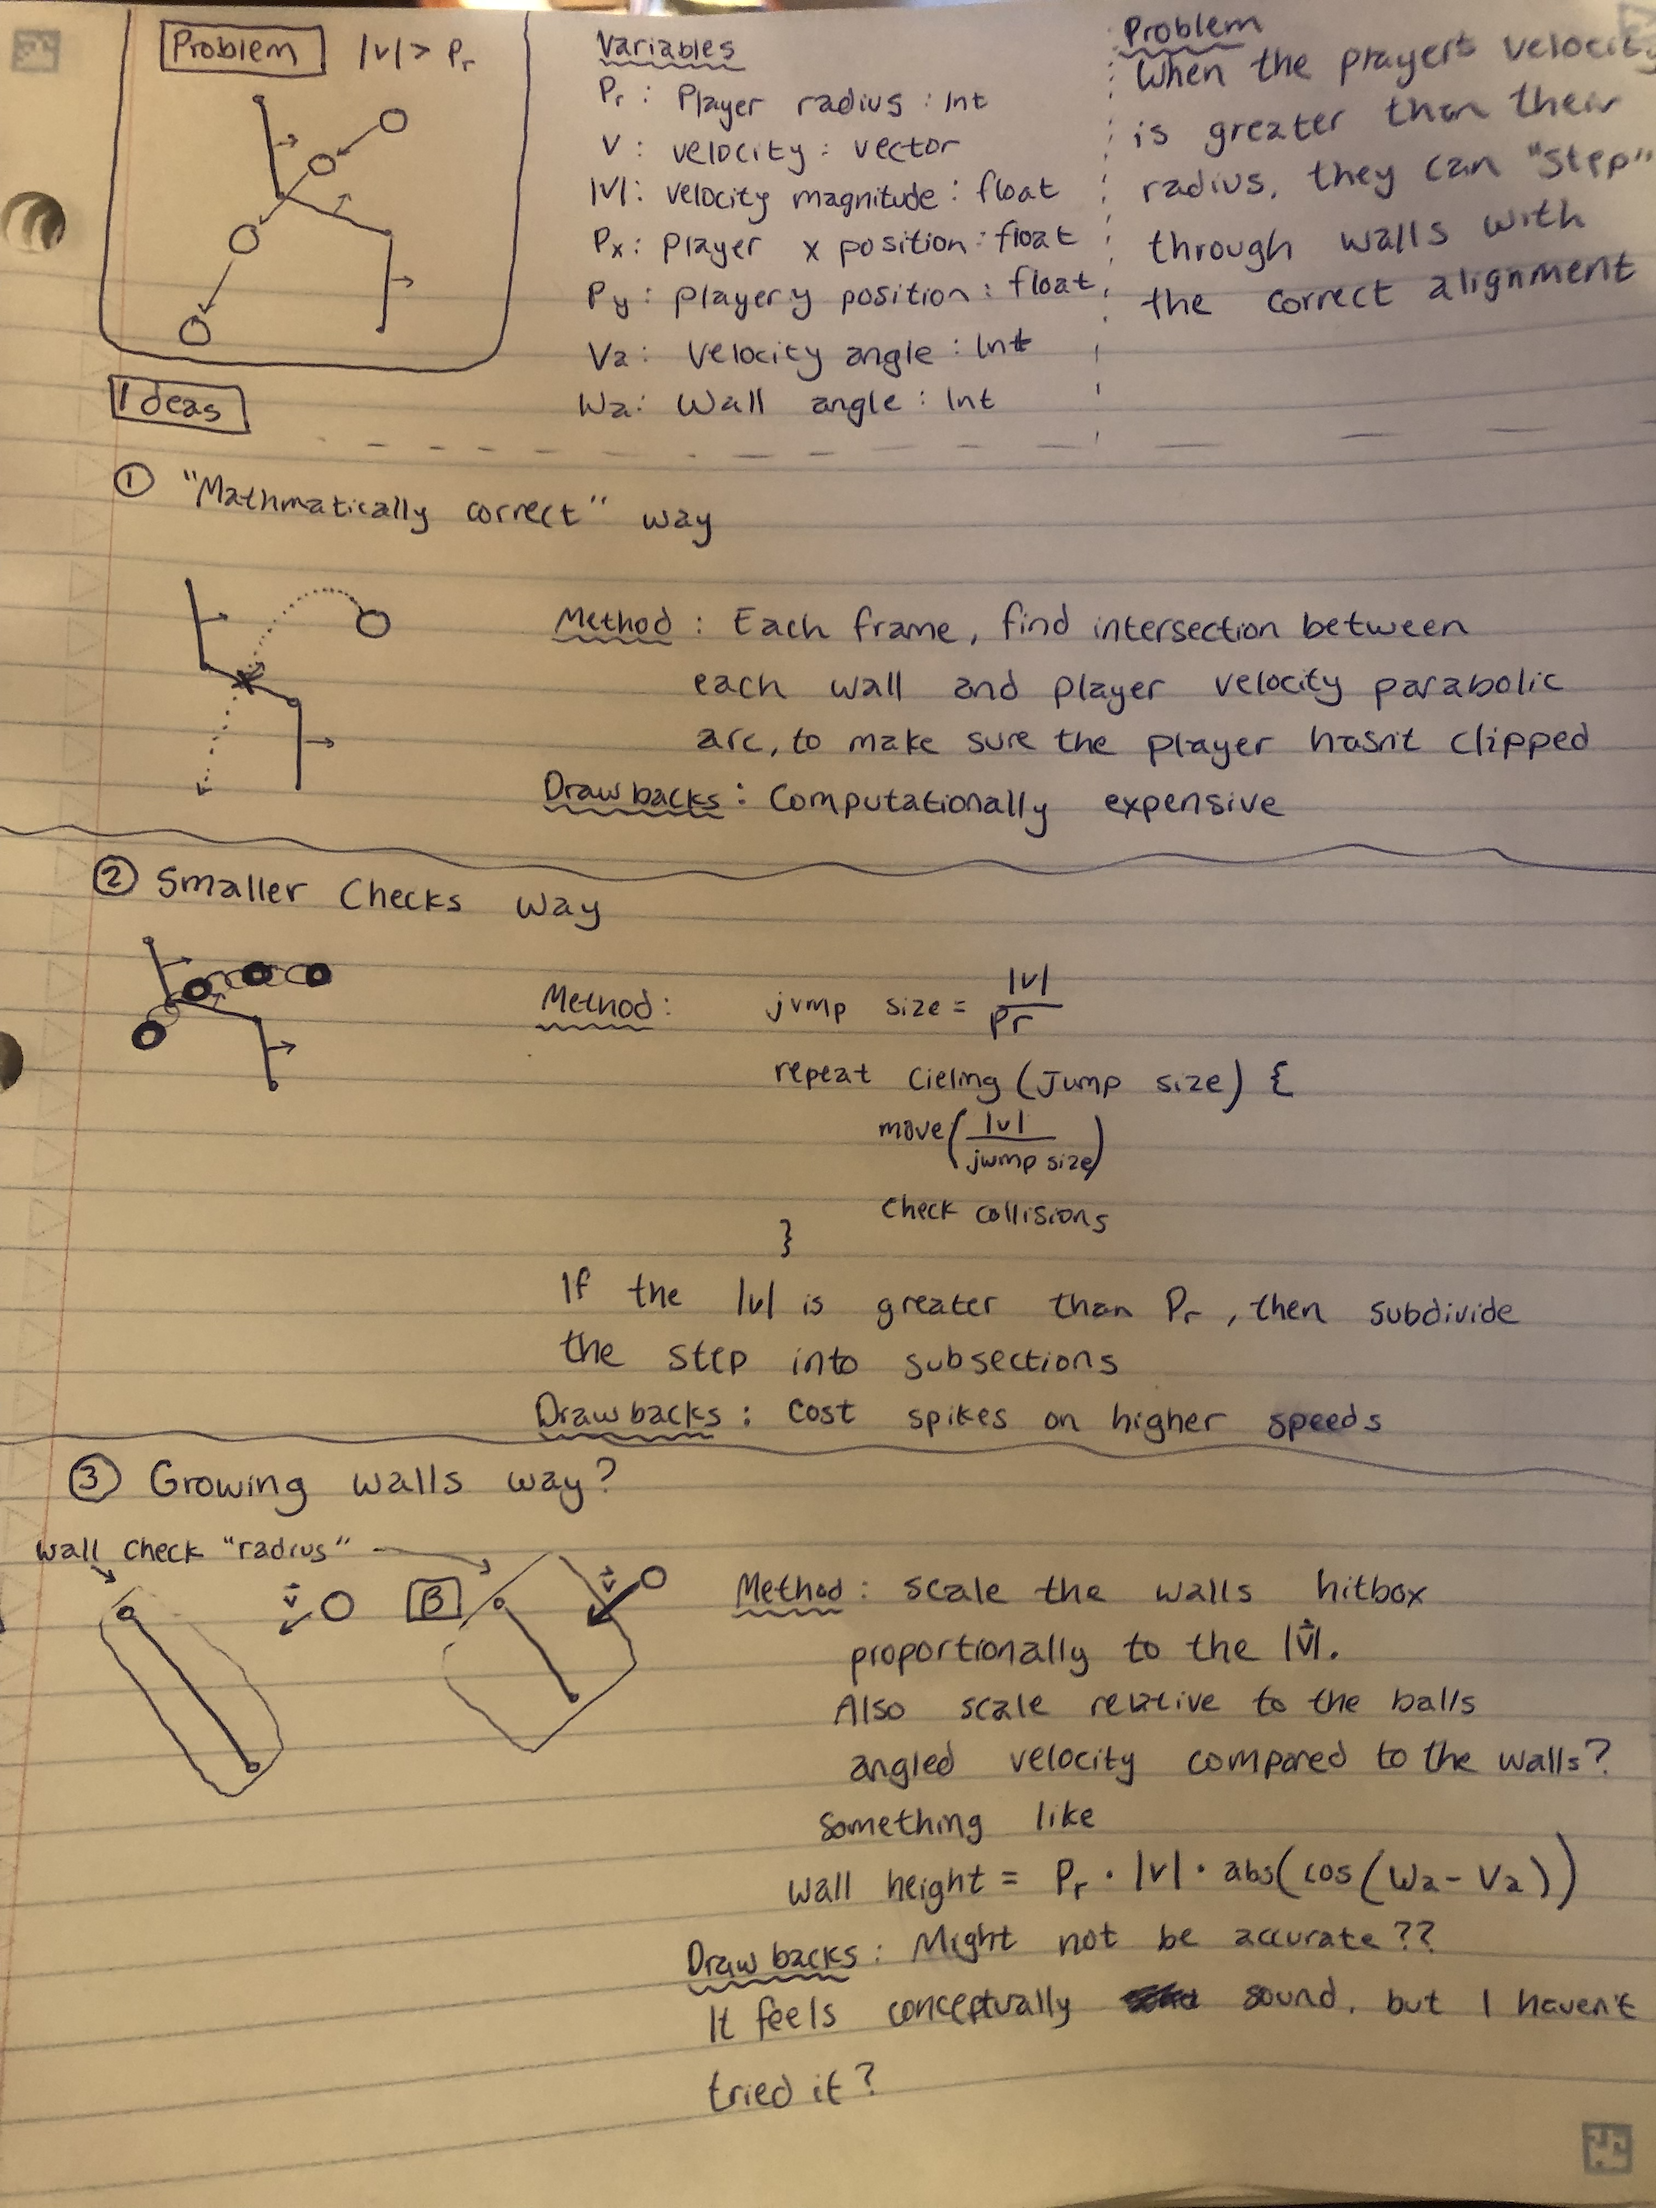 Problem |v| > Pr
Variables
Pr : Player radius : Int
V : velocity : vector
|V| : velocity magnitude : float
Px : player x position : float
Py : player y position : float
Va : Velocity angle : Int
Wa : Wall angle : Int
Problem
When the prayers velocity
is greater than their
radius, they can "step"
through walls with
the correct alignment
Ideas
① "Mathmatically correct" way
Method : Each frame, find intersection between
each wall and player velocity parabolic
arc, to make sure the player hasn't clipped
Drawbacks : Computationally expensive
② Smaller Checks Way
Method : jump size = |v| / Pr
repeat cieling (Jump size) {
move ( |v| / jump size )
check collisions
}
If the |v| is greater than Pr, then subdivide
the step into subsections
Drawbacks : Cost spikes on higher speeds
③ Growing walls way?
wall check "radius"
v⃗
B
v⃗
Method : scale the walls hitbox
proportionally to the |v⃗|.
Also scale relative to the balls
angled velocity compared to the walls?
Something like
wall height = Pr · |v| · abs(cos(Wa - Va))
Drawbacks : Might not be accurate??
It feels conceptually sound, but I haven't
tried it?